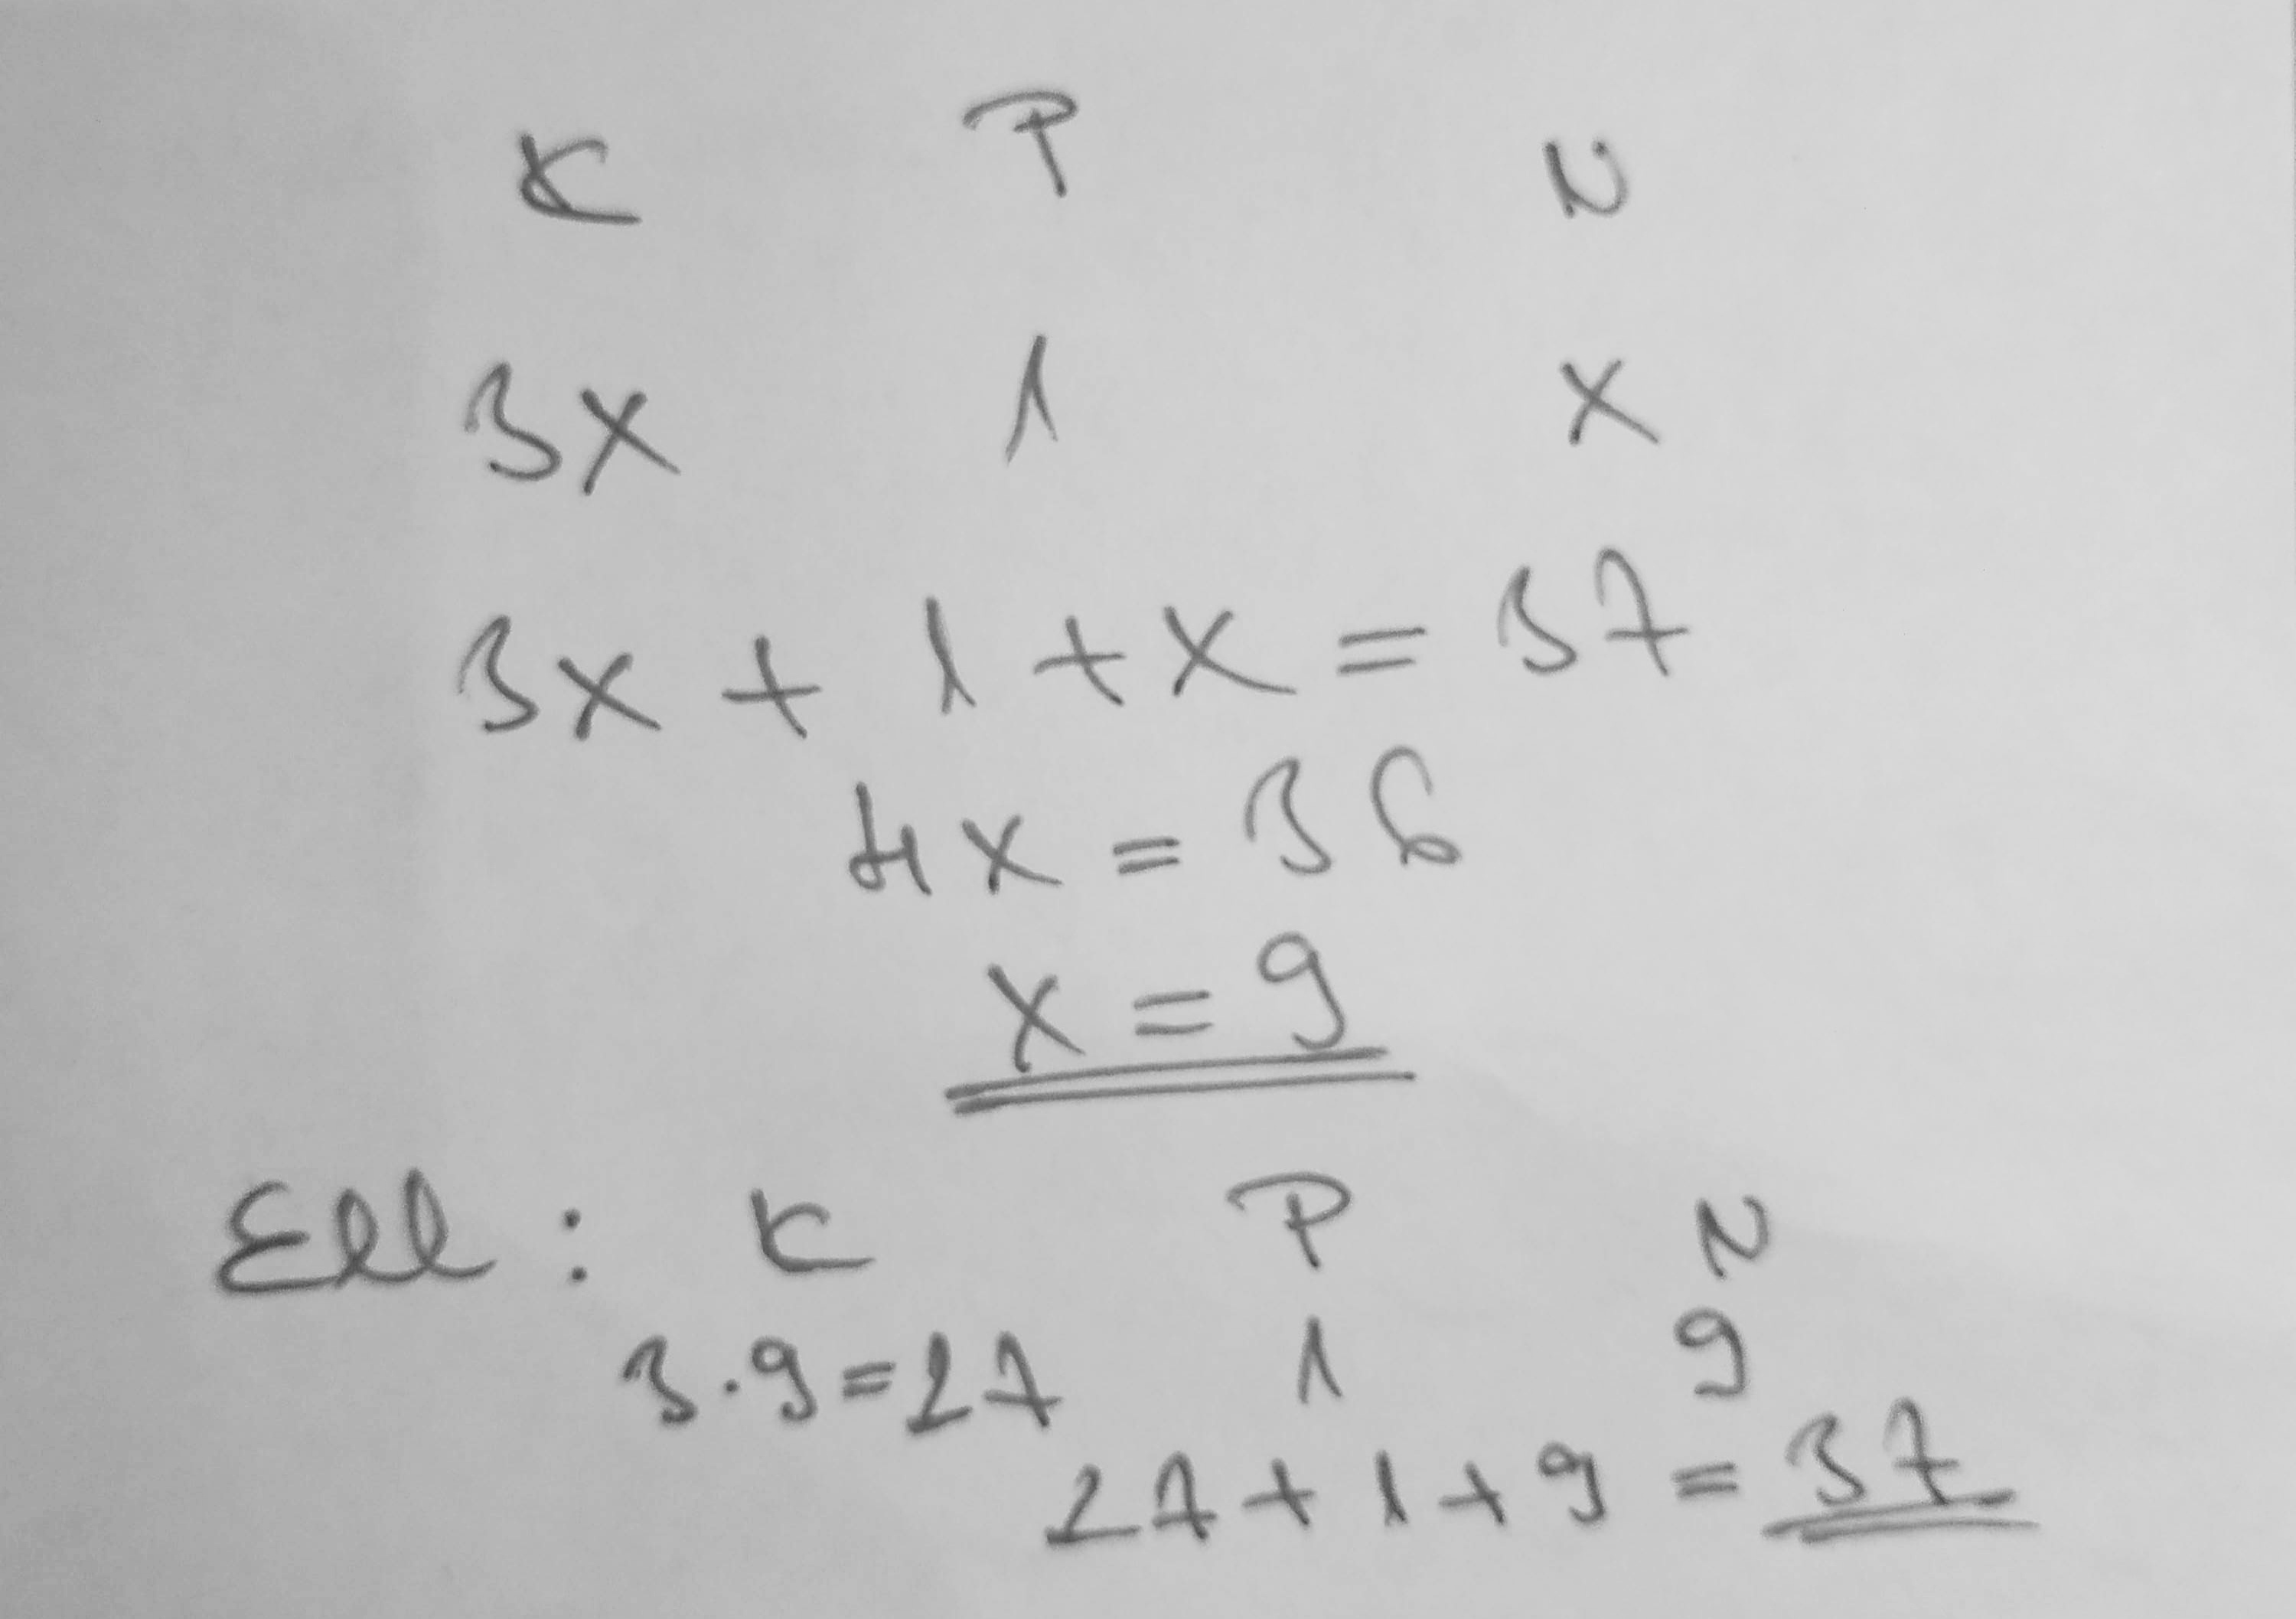 K P N
3x 1 x
3x + 1 + x = 37
4x = 36
x = 9
Ell : K P N
3·9=27 1 9
27 + 1 + 9 = 37